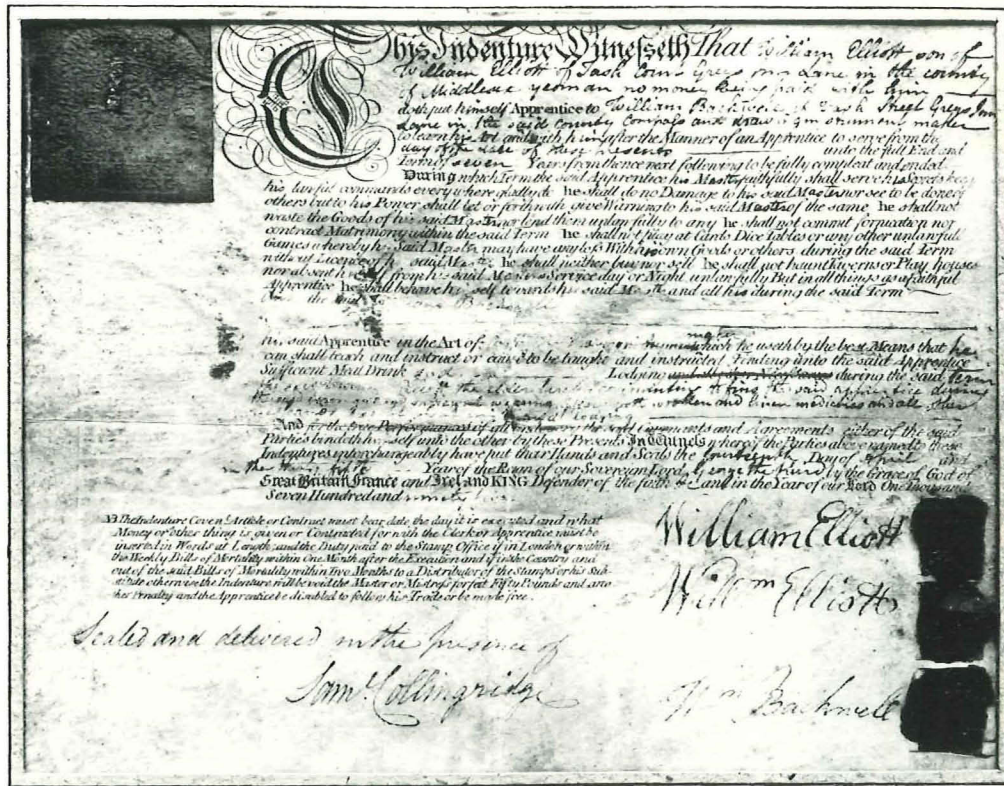 This Indenture Witnesseth That William Elliott son of
William Elliott of Tash Court Greys Inn Lane in the county
of Middlesex yeoman no money being paid with him
doth put himself Apprentice to William Backwell of Tash Street Greys Inn
Lane in the said county Compass and drawing instrument maker
to learn his Art and with him after the Manner of an Apprentice to serve from the
day of the date of these presents unto the full End and
Term of seven Years from thence next following to be fully compleat and ended
During which Term the said Apprentice his Master faithfully shall serve his Secrets keep
his lawful commands every where gladly do he shall do no Damage to his said Master nor see to be done of
others but to his Power shall let or forthwith give Warning to his said Master of the same he shall not
waste the Goods of his said Master nor lend them unlawfully to any he shall not commit fornication nor
contract Matrimony within the said Term he shall not play at Cards Dice Tables or any other unlawful
Games whereby his Said Master may have any loss With his own Goods or others during the said Term
without Licence of his said Master he shall neither buy nor sell he shall not haunt Taverns or Play houses
nor absent himself from his said Masters Service day or Night unlawfully But in all things as a faithful
Apprentice he shall behave himself towards his said Master and all his during the said Term
And the said
his said Apprentice in the Art of which he useth by the best Means that he
can shall teach and instruct or cause to be taught and instructed Finding unto the said Apprentice
Sufficient Meat Drink Lodging during the said Term
the the elder finding the said apprentice during
the wearing both woollen and linen medicines and all other
And for the true Performance of all the said Covenants and Agreements either of the said
Parties bindeth himself unto the other by these Presents In Witness whereof the Parties above named to these
Indentures interchangeably have put their Hands and Seals the fourteenth Day of April and
in the thirty fifth Year of the Reign of our Sovereign Lord George the third by the Grace of God of
Great Britain France and Ireland KING Defender of the faith &c and in the Year of our Lord One thousand
Seven Hundred and ninety five
NB The Indenture Covent Article or Contract must bear date the day it is executed and what
Money or other thing is given or Contracted for with the Clerk or Apprentice must be
inserted in Words at Length and the Duty paid to the Stamp Office if in London or within
the Weekly Bills of Mortality within One Month after the Execution and if in the Country and
out of the said Bills of Mortality within Two Months to a Distributor of the Stamps or his Sub-
stitute otherwise the Indenture will be void the Master or Mistress forfeit Fifty Pounds and ano-
ther Penalty and the Apprentice be disabled to follow his Trade or be made free.
William Elliott
Willm Elliott
Sealed and delivered in the presence of
Saml Collingridge
Wm Backwell